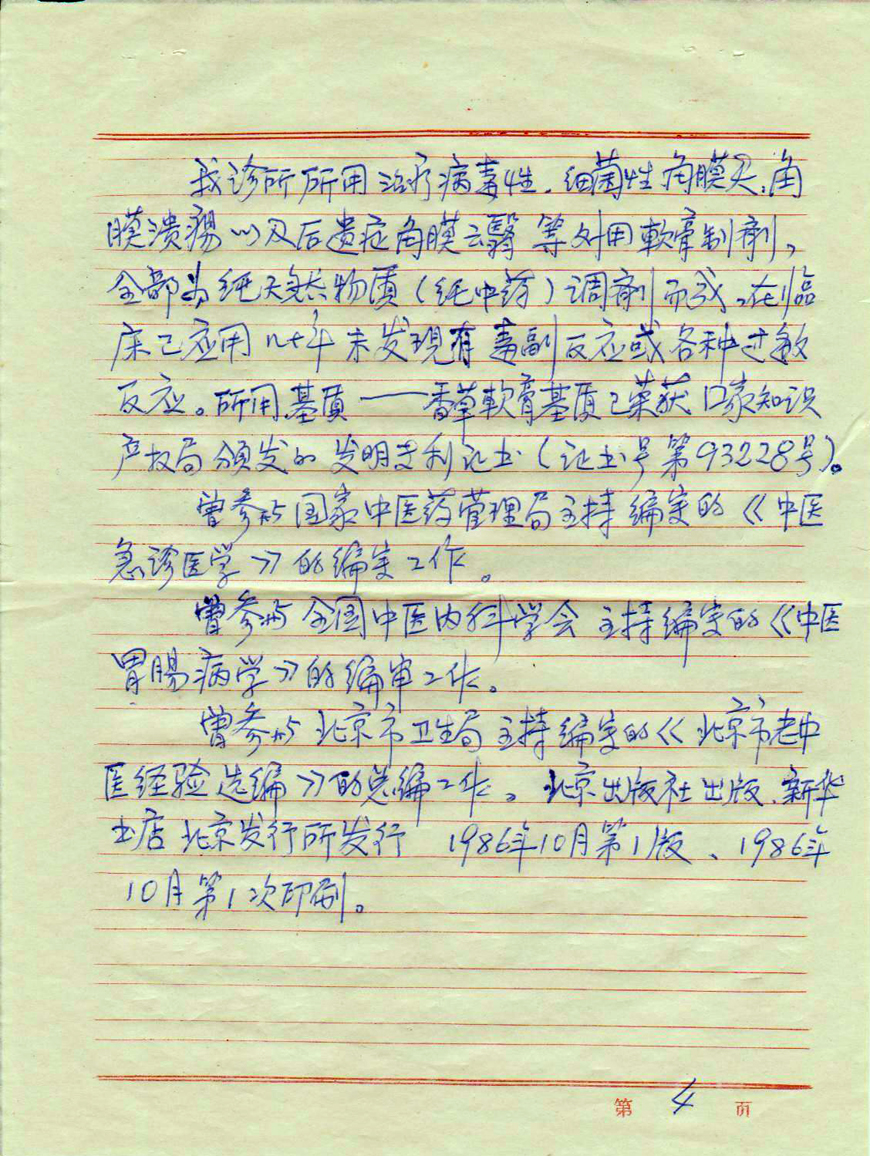 我诊所所用治疗病毒性、细菌性角膜炎、角
膜溃瘍以及后遗症角膜云翳等外用軟膏制剂，
全部为纯天然物质（纯中药）调剂而成。在临
床已应用几十年未发現有毒副反应或各种过敏
反应。所用基质——香草軟膏基质已荣获国家知识
产权局颁发的发明专利证书（证书号第93228号）。
曾参与国家中医药管理局主持编审的《中医
急诊医学》的编审工作。
曾参与全国中医内科学会主持编审的《中医
胃腸病学》的编审工作。
曾参与北京市卫生局主持编审的《北京市老中
医经验选编》的总编工作。北京出版社出版、新华
书店北京发行所发行 1986年10月第1版、1986年
10月第1次印刷。
第 4 页